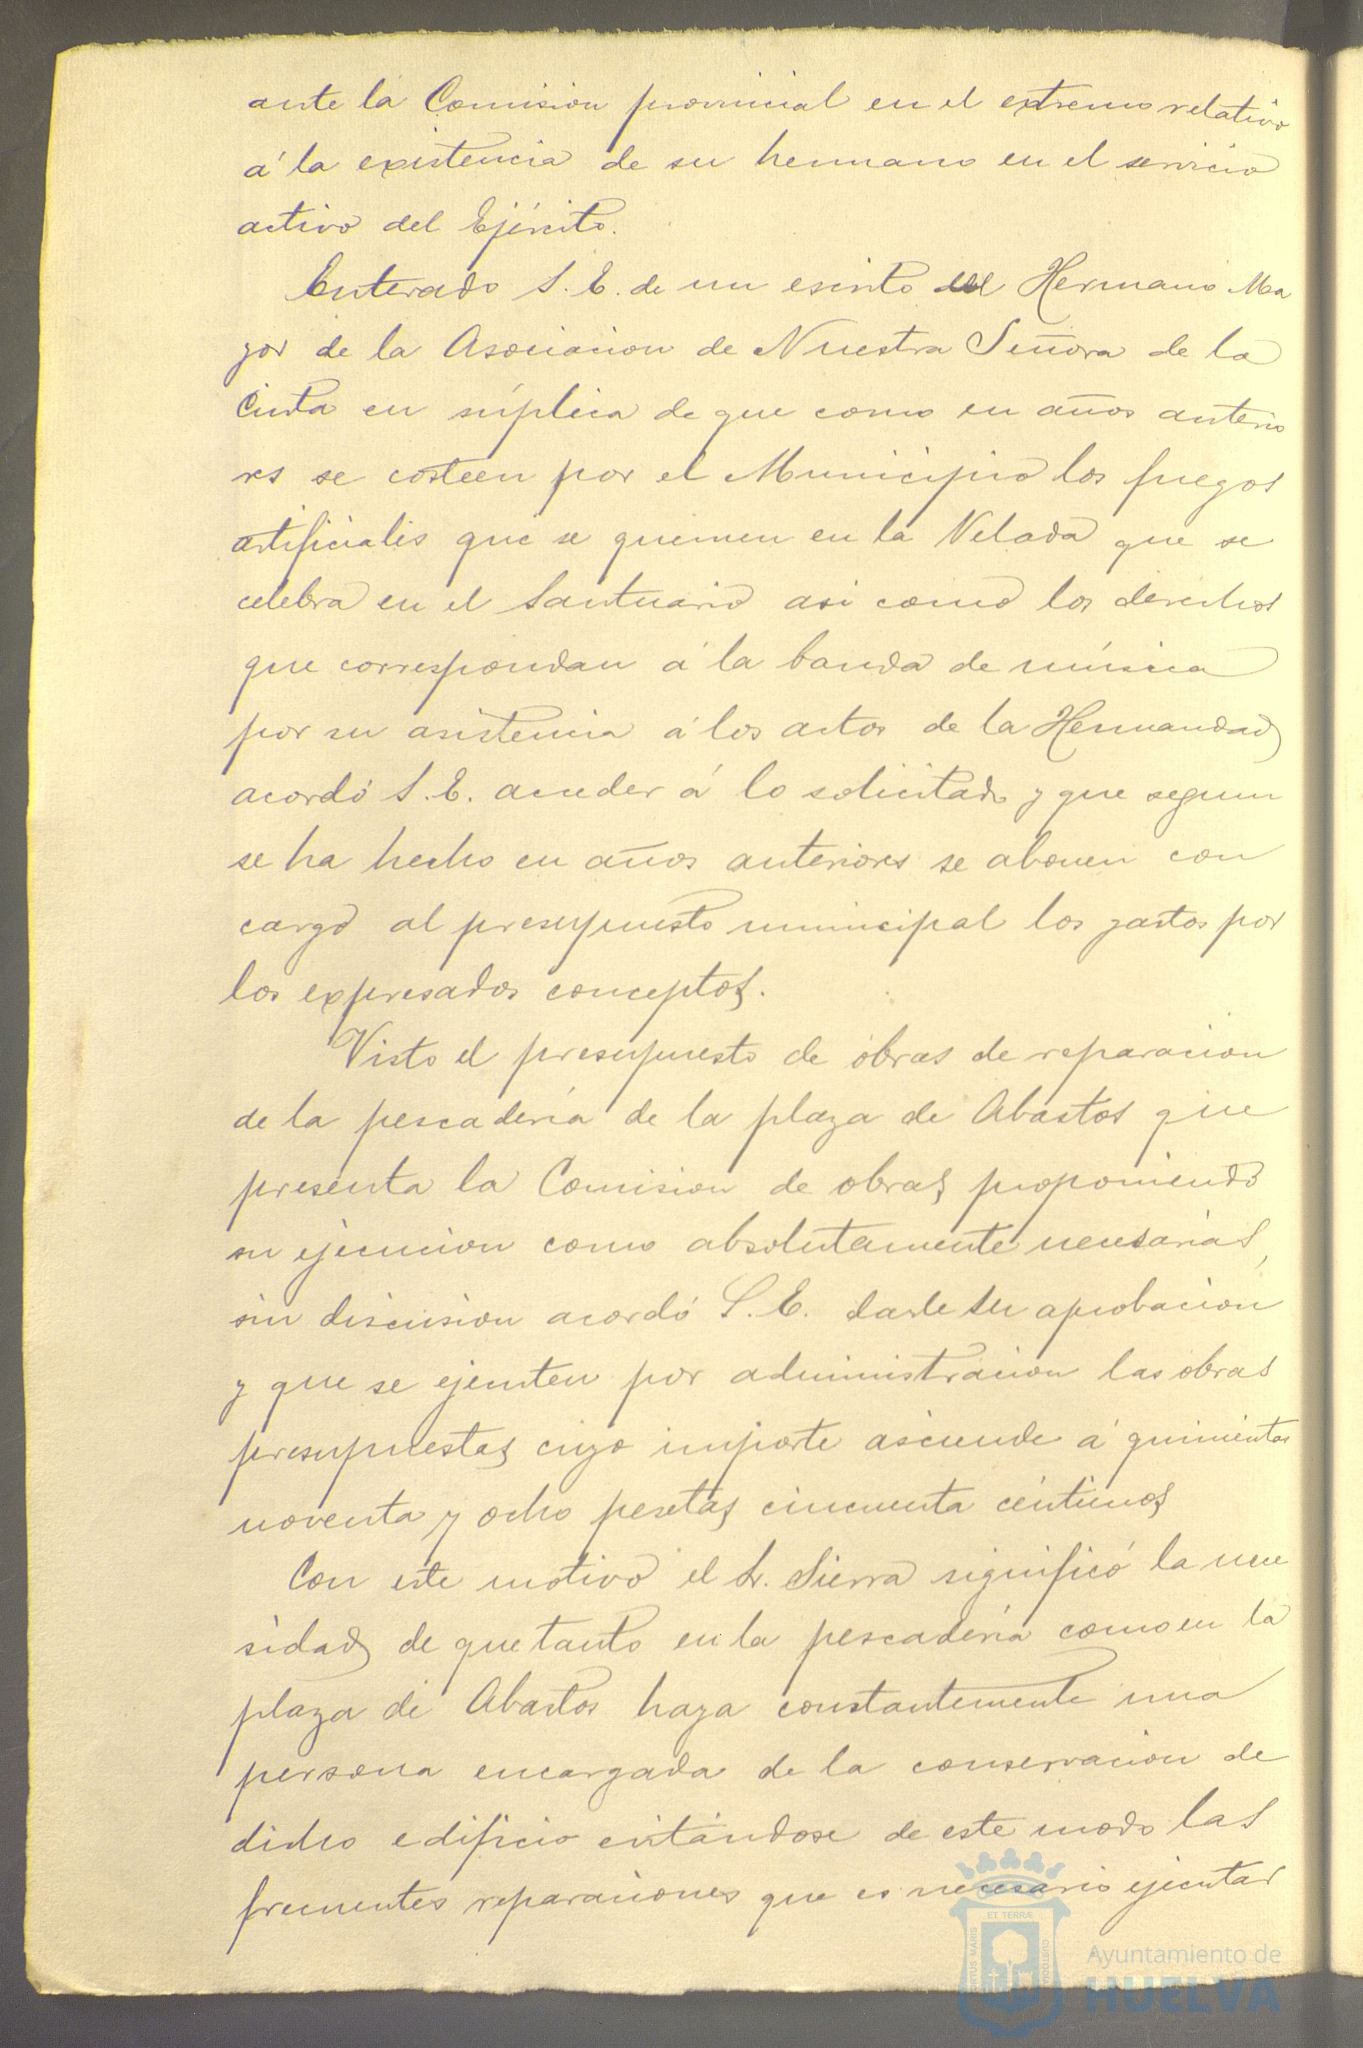 ante la Comision provincial en el extremo relativo
á la existencia de su hermano en el servicio
activo del Ejército.
Enterado S. E. de un escrito del Hermano Ma
yor de la Asociacion de Nuestra Señora de la
Cinta en súplica de que como en años anterio
res se costeen por el Municipio los fuegos
artificiales que se quemen en la Velada que se
celebra en el Santuario asi como los derechos
que correspondan á la banda de música
por su asistencia á los actos de la Hermandad
acordó S. E. acceder á lo solicitado y que segun
se ha hecho en años anteriores se abonen con
cargo al presupuesto municipal los gastos por
los expresados conceptos.
Visto el presupuesto de obras de reparacion
de la pescadería de la plaza de Abastos que
presenta la Comision de obras proponiendo
su ejecucion como absolutamente necesarias,
sin discusion acordó S. E. darle su aprobacion
y que se ejecuten por administracion las obras
presupuestas cuyo importe asciende á quinientas
noventa y ocho pesetas cincuenta céntimos
Con este motivo el Sr. Sierra significó la nece
sidad de que tanto en la pescadería como en la
plaza de Abastos haya constantemente una
persona encargada de la conservacion de
dicho edificio evitándose de este modo las
frecuentes reparaciones que es necesario ejecutar
ET TERRÆ
PORTUS MARIS
CUSTODIA
Ayuntamiento de
HUELVA